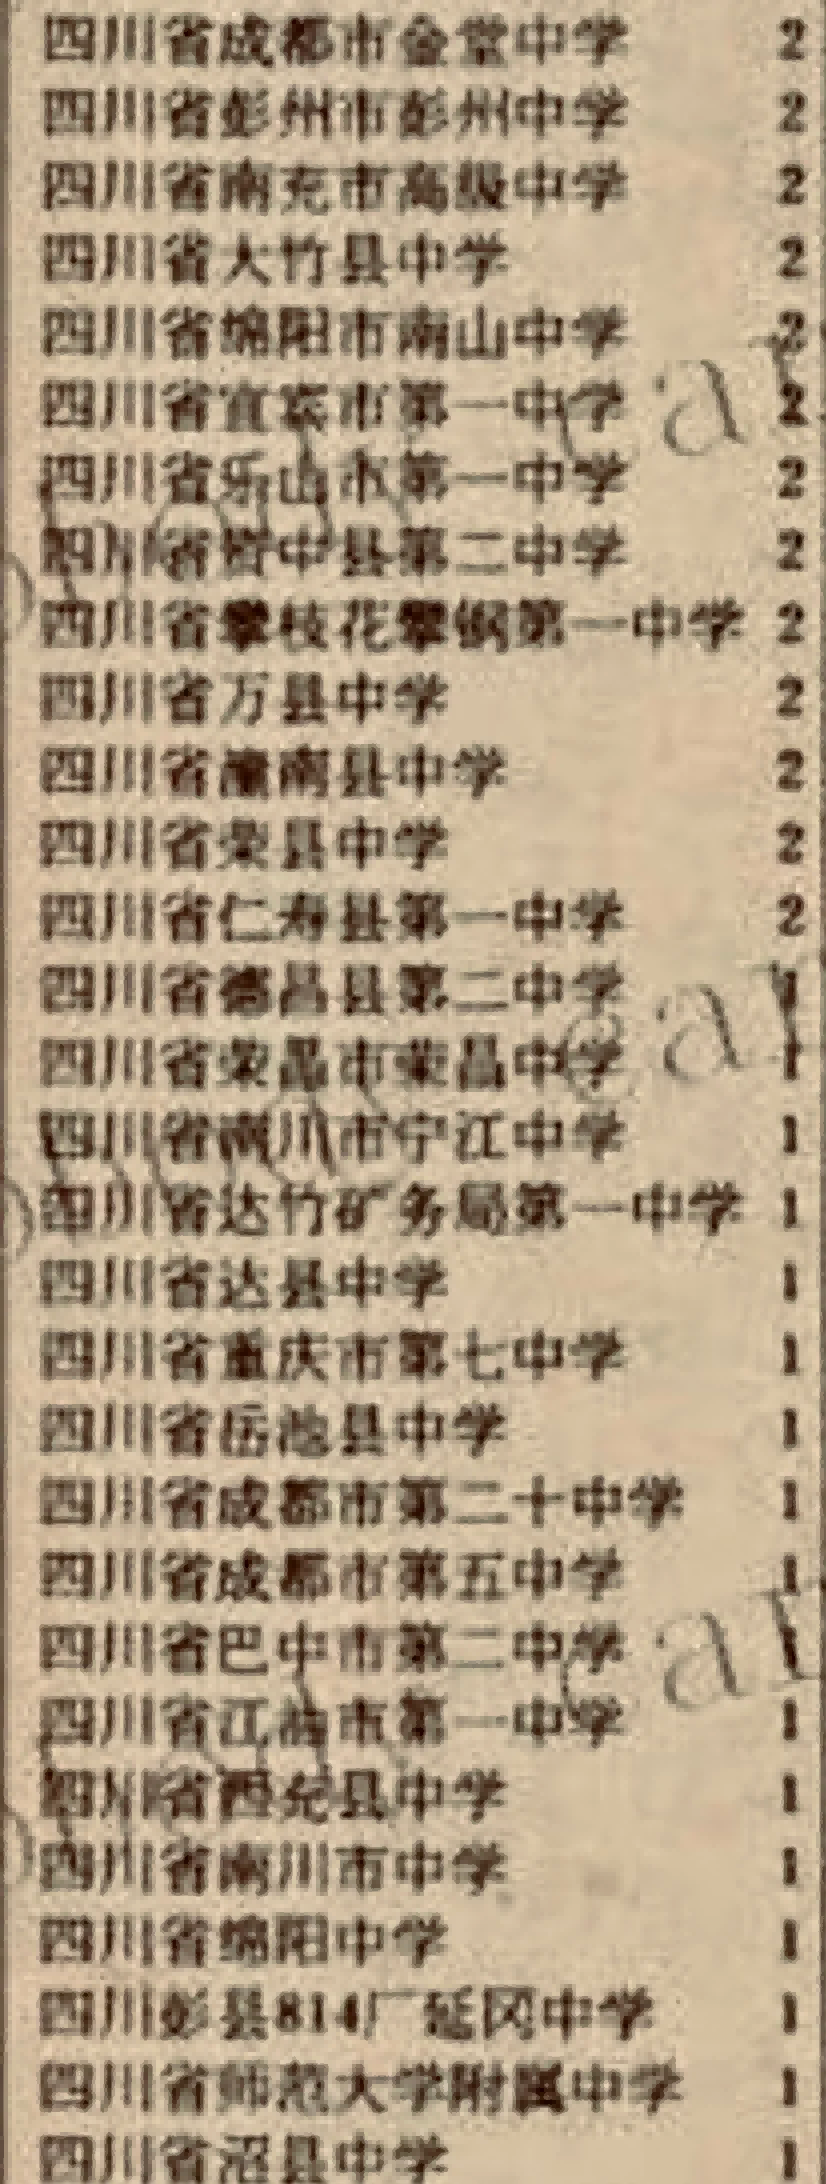 四川省成都市金堂中学 2
四川省彭州市彭州中学 2
四川省南充市高级中学 2
四川省大竹县中学 2
四川省绵阳市南山中学 2
四川省宜宾市第一中学 2
四川省乐山市第一中学 2
四川省资中县第二中学 2
四川省攀枝花攀钢第一中学 2
四川省万县中学 2
四川省潼南县中学 2
四川省荣县中学 2
四川省仁寿县第一中学 2
四川省德昌县第二中学 1
四川省荣昌市荣昌中学 1
四川省南川市宁江中学 1
四川省达竹矿务局第一中学 1
四川省达县中学 1
四川省重庆市第七中学 1
四川省岳池县中学 1
四川省成都市第二十中学 1
四川省成都市第五中学 1
四川省巴中市第二中学 1
四川省江油市第一中学 1
四川省西充县中学 1
四川省南川市中学 1
四川省绵阳中学 1
四川彭县814厂延冈中学 1
四川省师范大学附属中学 1
四川省县中学 1